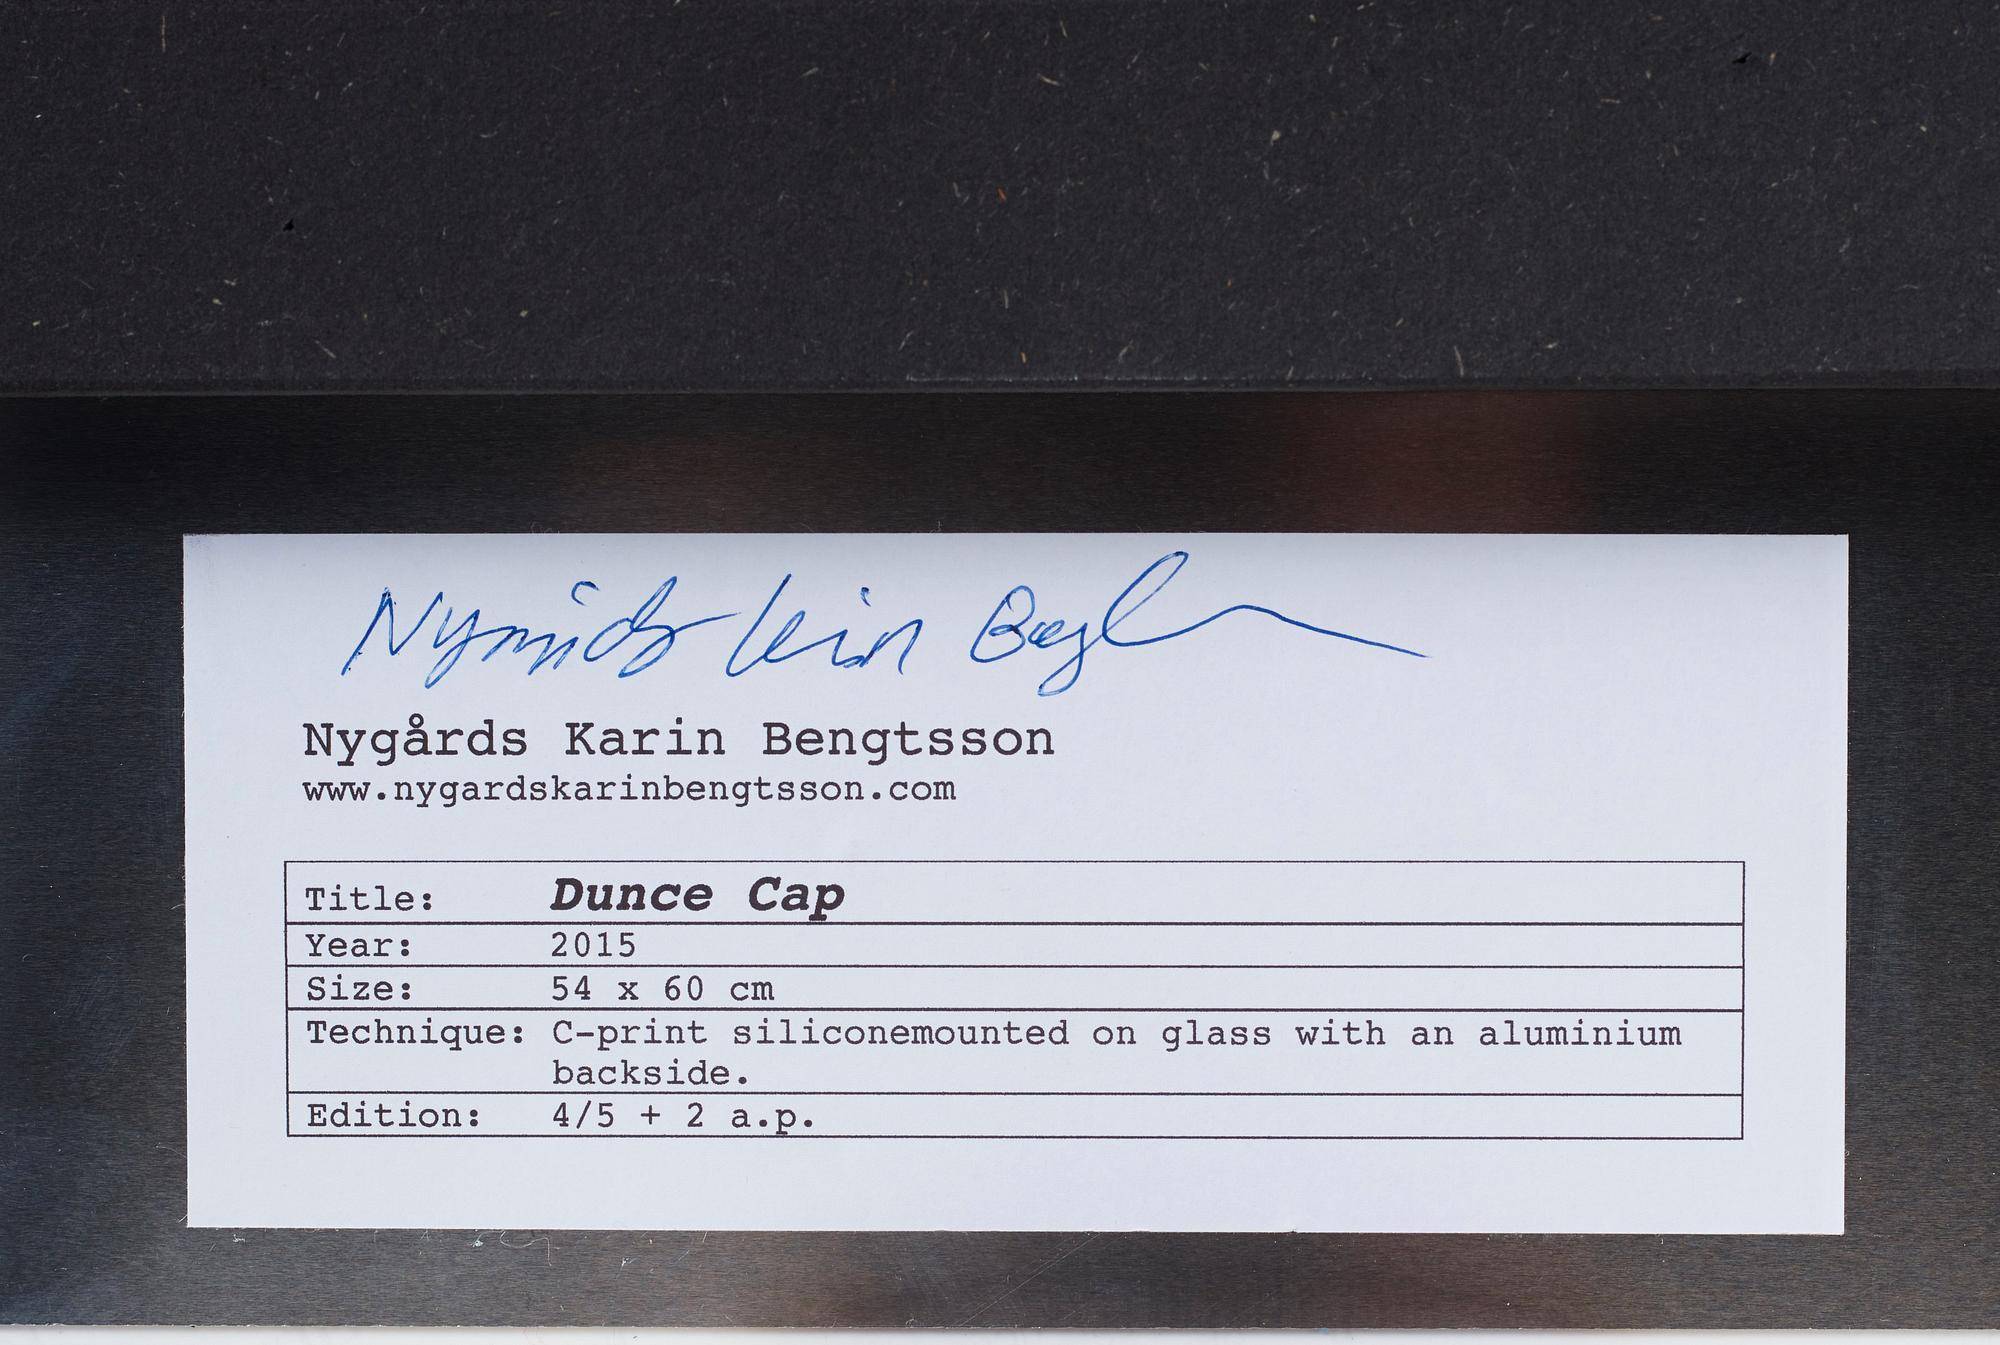 Nygårds Karin Bengtsson
Nygårds Karin Bengtsson
www.nygardskarinbengtsson.com
Title: Dunce Cap
Year: 2015
Size: 54 x 60 cm
Technique: C-print siliconemounted on glass with an aluminium
backside.
Edition: 4/5 + 2 a.p.